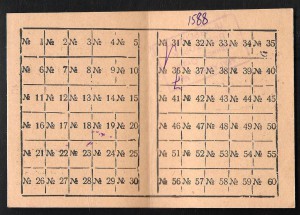 1588
№ 1 № 2 № 3 № 4 № 5
№ 6 № 7 № 8 № 9 № 10
№ 11 № 12 № 13 № 14 № 15
№ 16 № 17 № 18 № 19 № 20
№ 21 № 22 № 23 № 24 № 25
№ 26 № 27 № 28 № 29 № 30
№ 31 № 32 № 33 № 34 № 35
№ 36 № 37 № 38 № 39 № 40
№ 41 № 42 № 43 № 44 № 45
№ 46 № 47 № 48 № 49 № 50
№ 51 № 52 № 53 № 54 № 55
№ 56 № 57 № 58 № 59 № 60